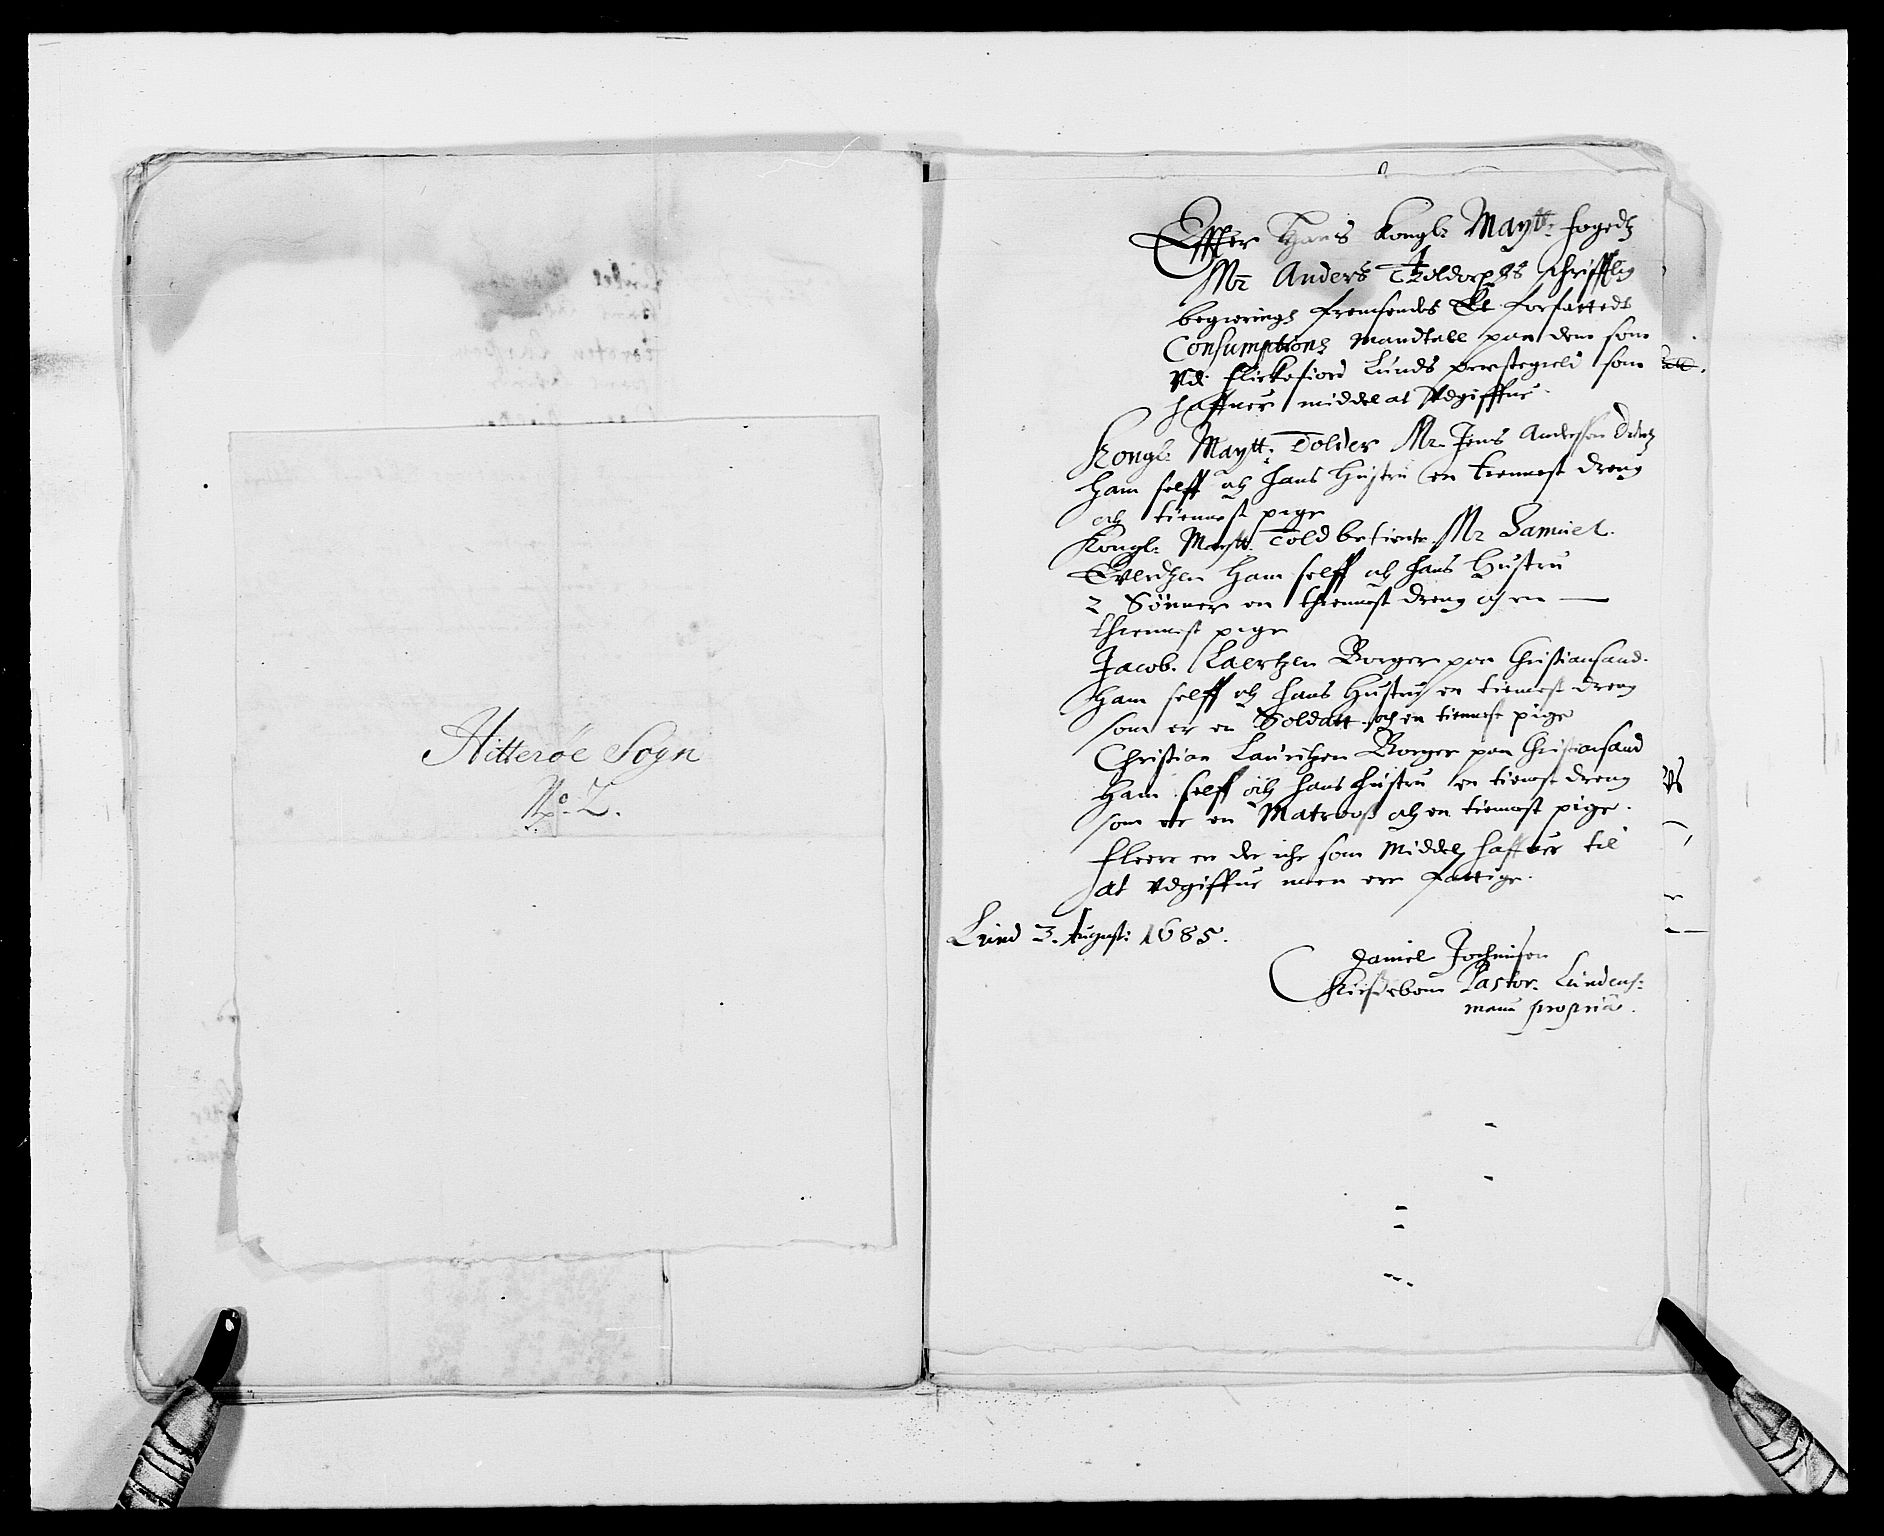 Hitterøe Sogn
No. 2.
Effter Hans Kongl: Maytt: fogedz
Mr Anders Tholdorphs schrifftlig
begierings fremsendes Et forfattedt
Consumptions Mandtall paa dem som
Vdi Fleckefiord Lunds perstegield som
haffuer middel at Vdgiffue.
Kongl: Maytt: Tolder Mr Jens Anderssen
Ham selff och hans Hustru en tiennest dreng
och tiennest pige
Kongl: Maytt: Told betiente Mr Samuel
Everdzen Ham selff och hans Hustru
2 Sönner en thiennest dreng och en —
thiennest pige
Jacob Laertzen Borger paa Christiansand.
Ham selff och hans Hustru en tiennest dreng
som er en Soldatt och en tiennest pige
Christian Lauritzen Borger paa Christiansand
Ham selff och hans hustru en tienest dreng
som er en Matrooß och en tiennest pige.
Fleere er der iche som Middel haffuer til
at vdgiffue men ere fattige.
Lund 3. August: 1685.
Daniel Jochimsen
Pastor. Lundens:
manu propria.